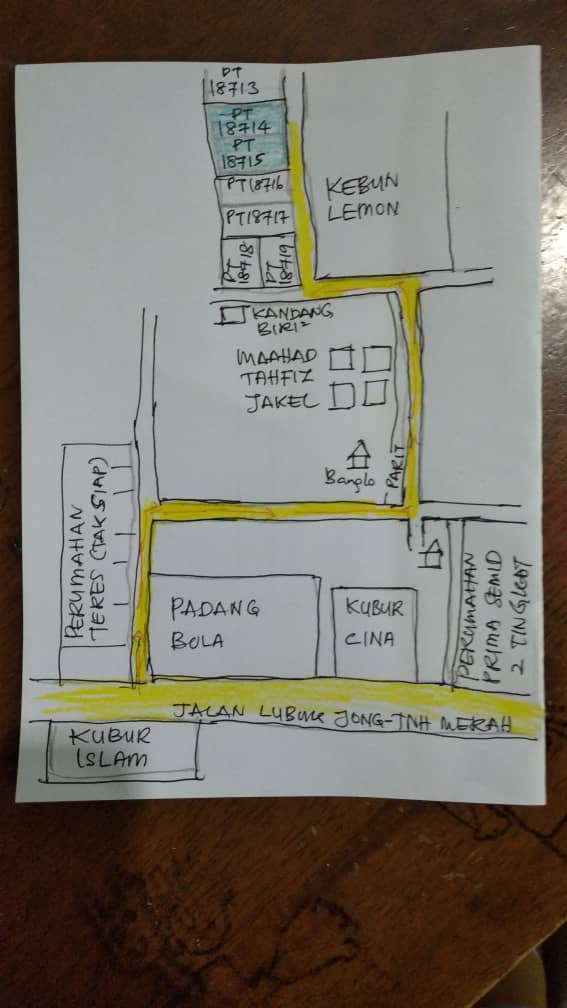 PT
18713
PT
18714
PT
18715
PT18716
PT18717
PT
18718
PT
18719
KEBUN
LEMON
KANDANG
BIRI²
MAAHAD
TAHFIZ
JAKEL
Banglo
PARIT
PERUMAHAN
TERES (TAK SIAP)
PADANG
BOLA
KUBUR
CINA
PERUMAHAN
PRIMA SEMID
2 TINGKAT
JALAN LUBUK JONG-TNH MERAH
KUBUR
ISLAM